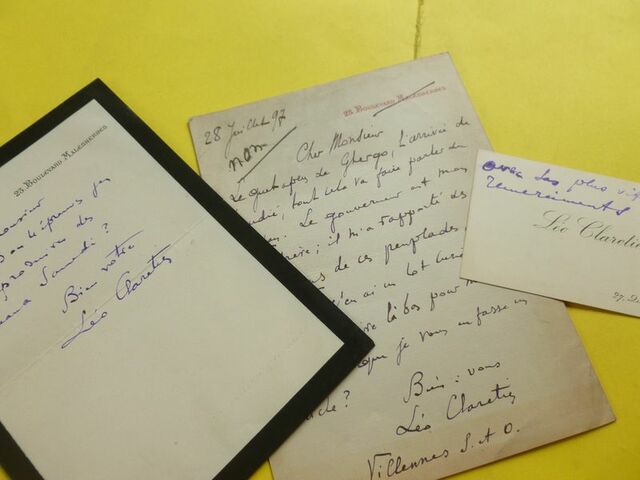 25. BOULEVARD MALESHERBES
Monsieur
Samedi ?
Bien votre
Léo Claretie
25. BOULEVARD MALESHERBES
28 Juillet 97
non
Cher Monsieur
Le guet apens de Ghergo, l'arrivée de
tout cela va faire parler du
Le gouverneur est mon
il m'a rapporté des
de ces peuplades
j'en ai un lot
là bas pour
que je vous en fasse un
Bien à vous
Léo Claretie
Villennes S. et O.
avec les plus vifs
remerciements
Léo Claretie